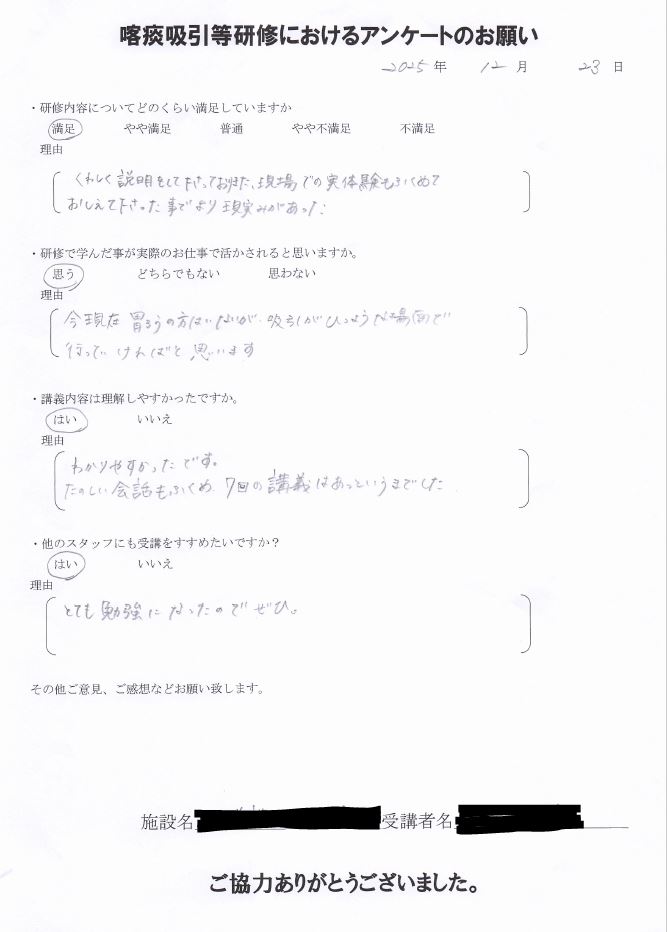 喀痰吸引等研修におけるアンケートのお願い
2025 年 12 月 23 日
・研修内容についてどのくらい満足していますか
満足 やや満足 普通 やや不満足 不満足
理由
くわしく説明をして下さっており、また、現場での実体験もふくめて
おしえて下さった事でより現実みがあった。
・研修で学んだ事が実際のお仕事で活かされると思いますか。
思う どちらでもない 思わない
理由
今現在胃ろうの方はいないが、吸引がひつような場面で
行っていければと思います
・講義内容は理解しやすかったですか。
はい いいえ
理由
わかりやすかったです。
たのしい会話もふくめ、7回の講義はあっというまでした
・他のスタッフにも受講をすすめたいですか?
はい いいえ
理由
とても勉強になったのでぜひ。
その他ご意見、ご感想などお願い致します。
施設名 受講者名
ご協力ありがとうございました。